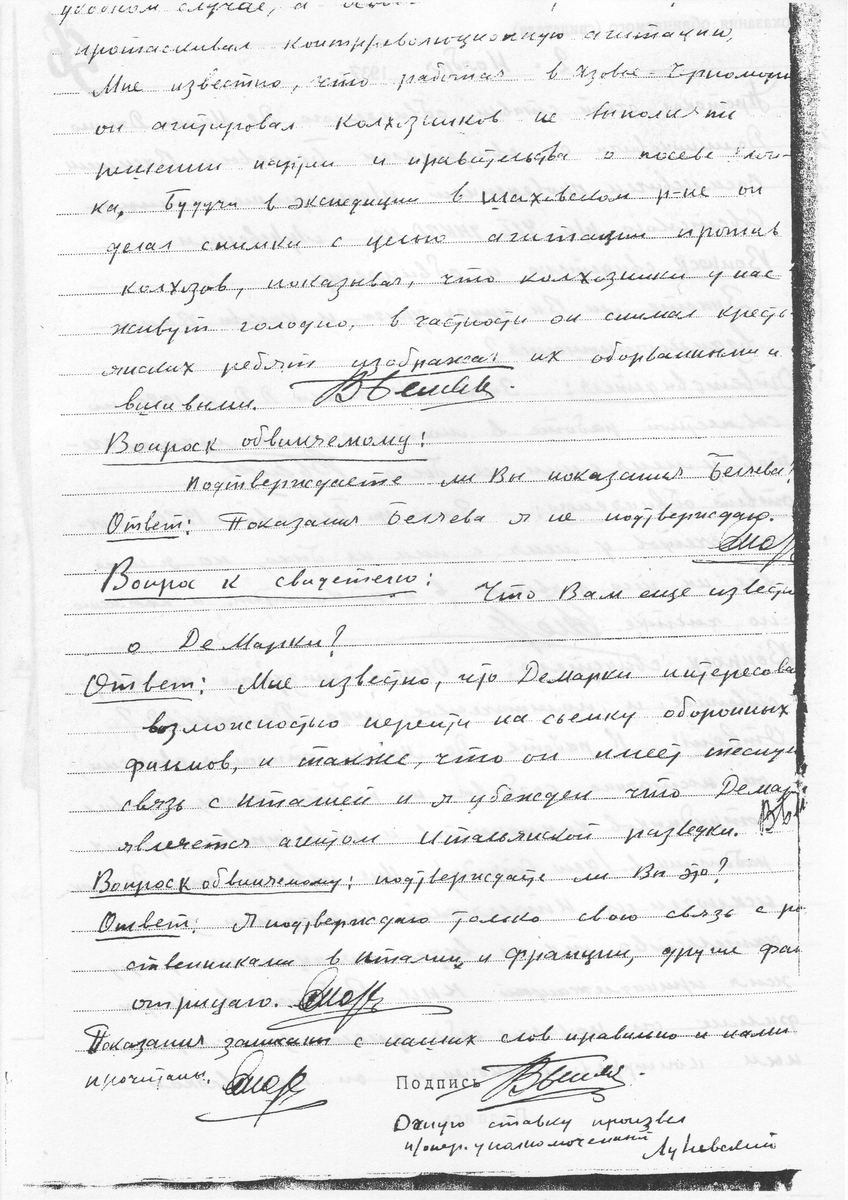 удобном случае, а
протаскивал контрреволюционную агитацию,
Мне известно, что работая в Азово-Черномор
он агитировал колхозников не выполнять
решении партии и правительства о посеве
ка. Будучи в экспедиции в Шаховском р-не он
делал снимки с целью агитации против
колхозов, показывая, что колхозники у нас
живут голодно, в частности он снимал кресть
янских ребят изображая их оборванными и
вшивыми.
Вопрос к обвиняемому!
Подтверждаете ли Вы показания Беляева?
Ответ: Показания Беляева я не подтверждаю.
Вопрос к свидетелю: Что Вам еще извест
о Де Марки?
Ответ: Мне известно, что Демарки интересова
возможностью перейти на съемку оборонных
фильмов, и также, что он имеет тесную
связь с Италией и я убежден что Демар
является агентом Итальянской разведки.
Вопрос к обвиняемому: подтверждаете ли Вы это?
Ответ: Я подтверждаю только свою связь с ро
ственниками в Италии и Франции, другие фак
отрицаю.
Показания записаны с наших слов правильно и нами
прочитаны. Подпись
Очную ставку произвел
п/опер. уполномоченный